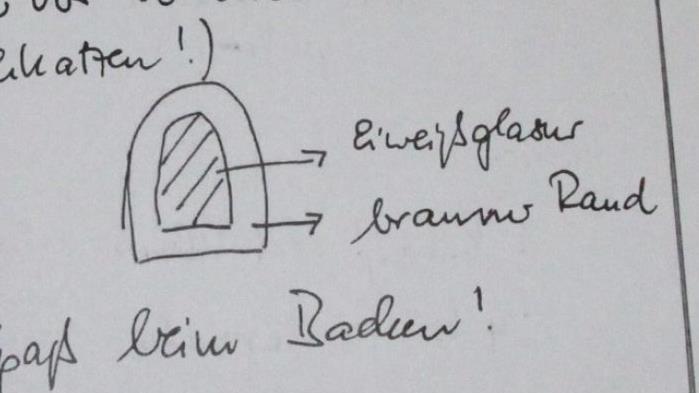 Eiweißglasur
brauner Rand
paß beim Backen!